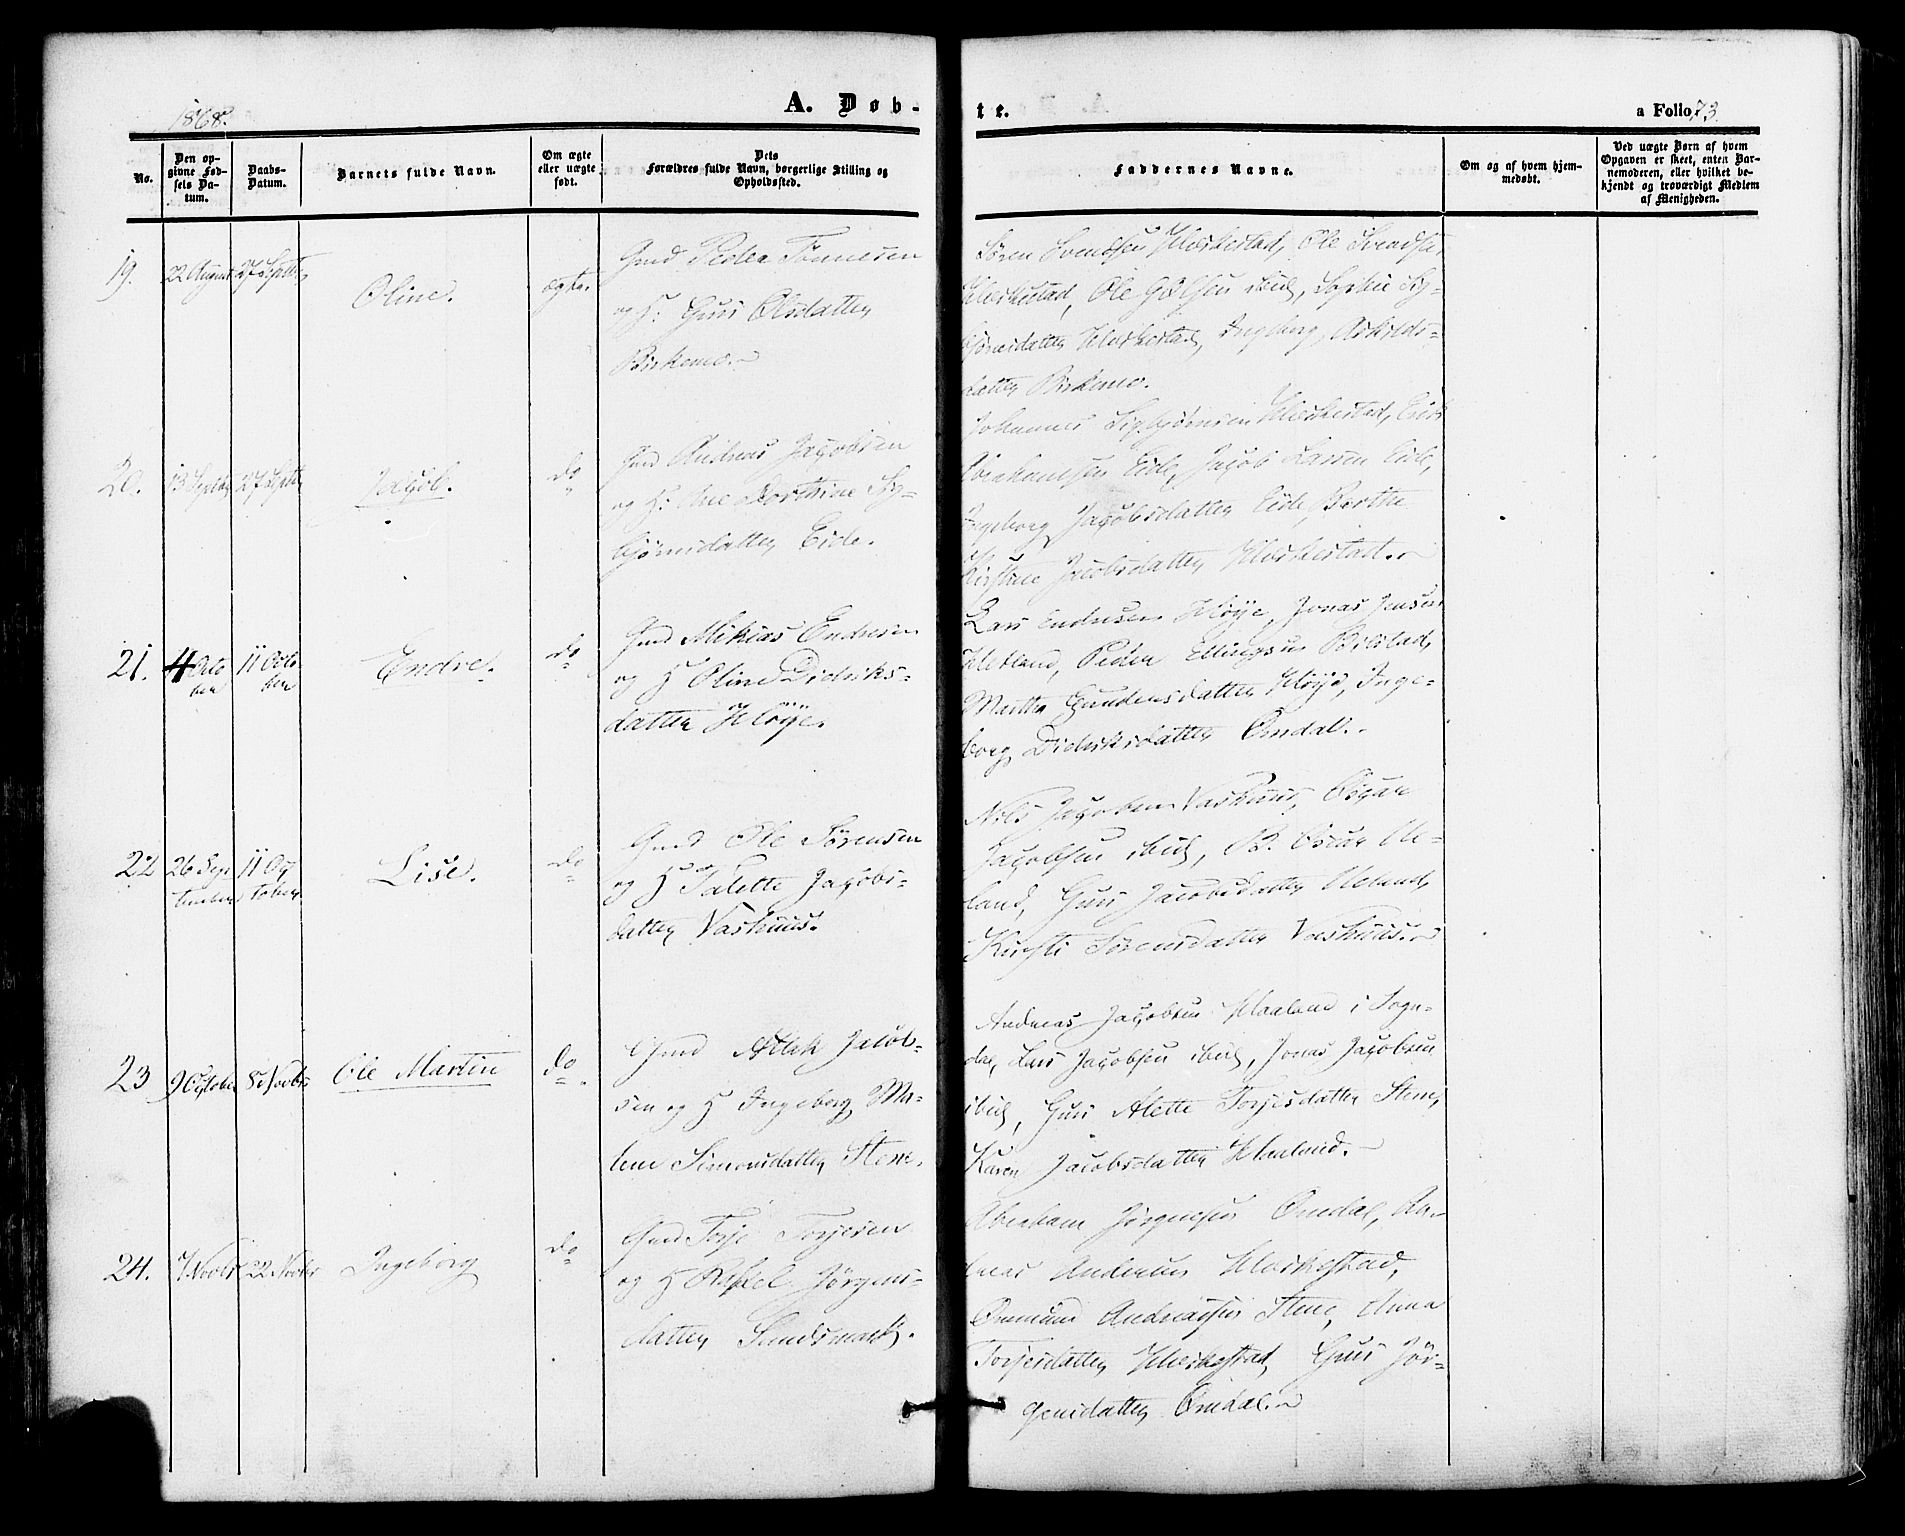 1868.
A. Døb-
te.
a Folio 73.
No.
Den op-
givne Fød-
sels Da-
tum.
Daabs-
Datum.
Barnets fulde Navn.
Om ægte
eller uægte
født.
Dets
Forældres fulde Navn, borgerlige Stilling og
Opholdssted.
Faddernes Navne.
Om og af hvem hjem-
medøbt.
Ved uægte Børn af hvem
Opgaven er skeet, enten Bar-
nemoderen, eller hvilket be-
kjendt og troværdigt Medlem
af Menigheden.
19.
22 August
27 Septbr
Oline.
ægte.
Gmd Peder Tønnesen
og H: Guri Olsdatter
Birkemo.
Søren Svendsen Hæskestad, Ole Svendsen
Hæskestad, Ole ibid, Sophie Sig-
bjørnsdatter Hæskestad, Ingeborg Askilds-
datter Birkemo.
20.
13 Septbr
27 Septbr
Jacob.
do
Gmd Andreas Jacobsen
og H: Ane Dorthine Sig-
bjørnsdatter Eide.
Johannes Sigbjørnsen Hæskestad, Erik
Abrahamsen Eide, Jacob Larsen Eide,
Ingeborg Jacobsdatter Eide, Berthe
Kirstine Jacobsdatter Hæskestad.
21.
4 Octo
ber
11 Octo
ber
Endre.
do
Gmd Mikias Endresen
og H Oline Didriks-
datter Høye.
Lars Endresen Høye, Jonas Jensen
Hetland, Peder Ellingsen Bilstad,
Martha Gundersdatter Høye, Inge-
borg Didriksdatter Omdal.
22
26 Sep
tember
11 Oc
tober
Lise.
do
Gmd Ole Sørensen
og H Talette Jacobs-
datter Vashuus.
Nils Jacobsen Vashuus, Osgar
Jacobsen ibid, B. Oscar He-
land, Guri Jacobsdatter Heland,
Kirsti Sørensdatter Vashuus.
23
9 October
8 Novbr
Ole Martin
do
Gmd Atlak Jacob-
sen og H Ingeborg Ma-
lene Simonsdatter Stene.
Andreas Jacobsen Haaland i Sogn-
dal, Lars Jacobsen ibid, Jonas Jacobsen
ibid, Guri Alette Torjesdatter Stene,
Karen Jacobsdatter Haaland.
24.
7 Novbr
22 Novbr
Ingeborg
do
Gmd Torje Torjesen
og H Rakel Jørgens-
datter Sandsmark.
Abraham Jørgensen Omdal, An-
dreas Andersen Hæskestad,
Ommund Andreassen Stene, Anna
Torjesdatter Hæskestad, Guri Jør-
gensdatter Omdal.